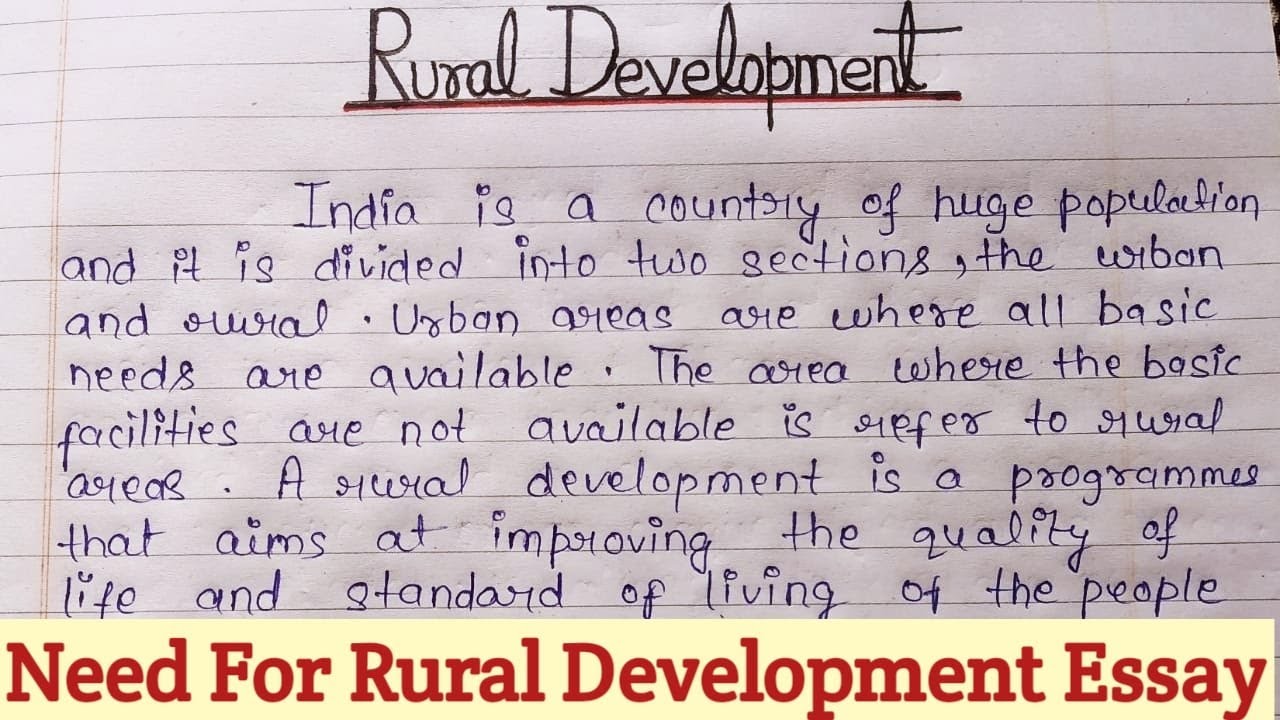 Rural Development
India is a country of huge population
and it is divided into two sections, the urban
and rural. Urban areas are where all basic
needs are available. The area where the basic
facilities are not available is refer to rural
areas. A rural development is a programmes
that aims at improving the quality of
life and standard of living of the people
Need For Rural Development Essay